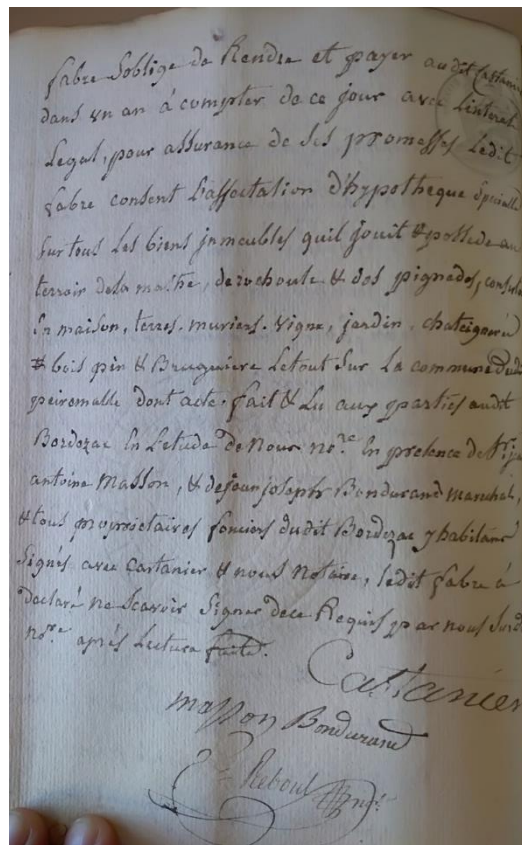 fabre soblige de Rendre et payer audit Castanier
dans un an à compter de ce jour avec Linteret
Legal, pour assurance de ses promesses Ledit
fabre consent L'affectation d'hypotheque speciale
sur tous Les biens jnmeubles quil jouit & possede au
terroir dela masthe, derochoule & dos pignedes,
En maison, terres. muriers. vigne, jardin, chateigneré
& bois pin & Bruguiere Letout sur La commune dudit
peiromalle dont acte. fait & Lu aux parties audit
Bordezac En L'etude de Nous no.re En presence de
antoine Masson, & dejean joseph Bondurand marechal,
& tous proprietaires fonciers dudit Bordezac y habitans
Signés avec Castanier & nous Notaire, ledit fabre à
declaré ne scavoir signer dece Requis par nous Susd
no.re après Lecture faite.
Castanier
masson Bondurand
Reboul no.re